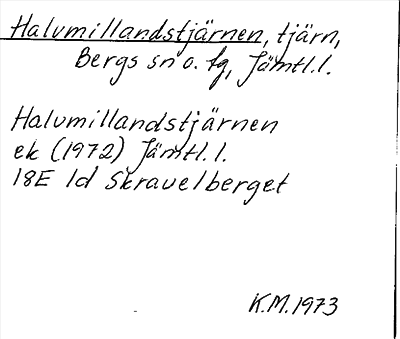 Halvmillandstjärnen, tjärn,
Bergs sn o. tg, Jämtl.l.
Halvmillandstjärnen
ek (1972) Jämtl.l.
18E 1d Skravelberget
K.M. 1973